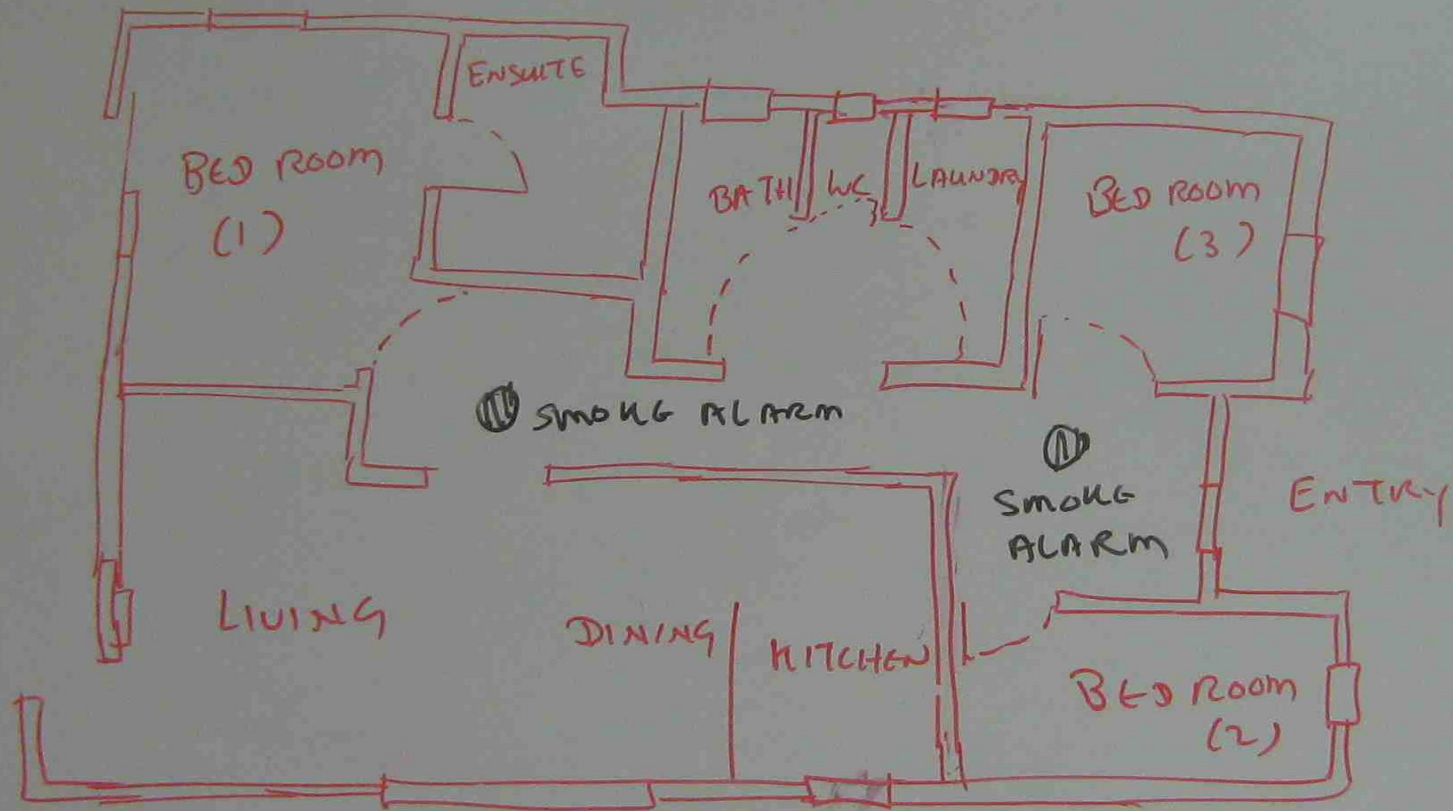 ENSUITE
BED ROOM
(1)
BATH
WC
LAUNDRY
BED ROOM
(3)
SMOKE ALARM
SMOKE
ALARM
ENTRY
LIVING
DINING
KITCHEN
BED ROOM
(2)